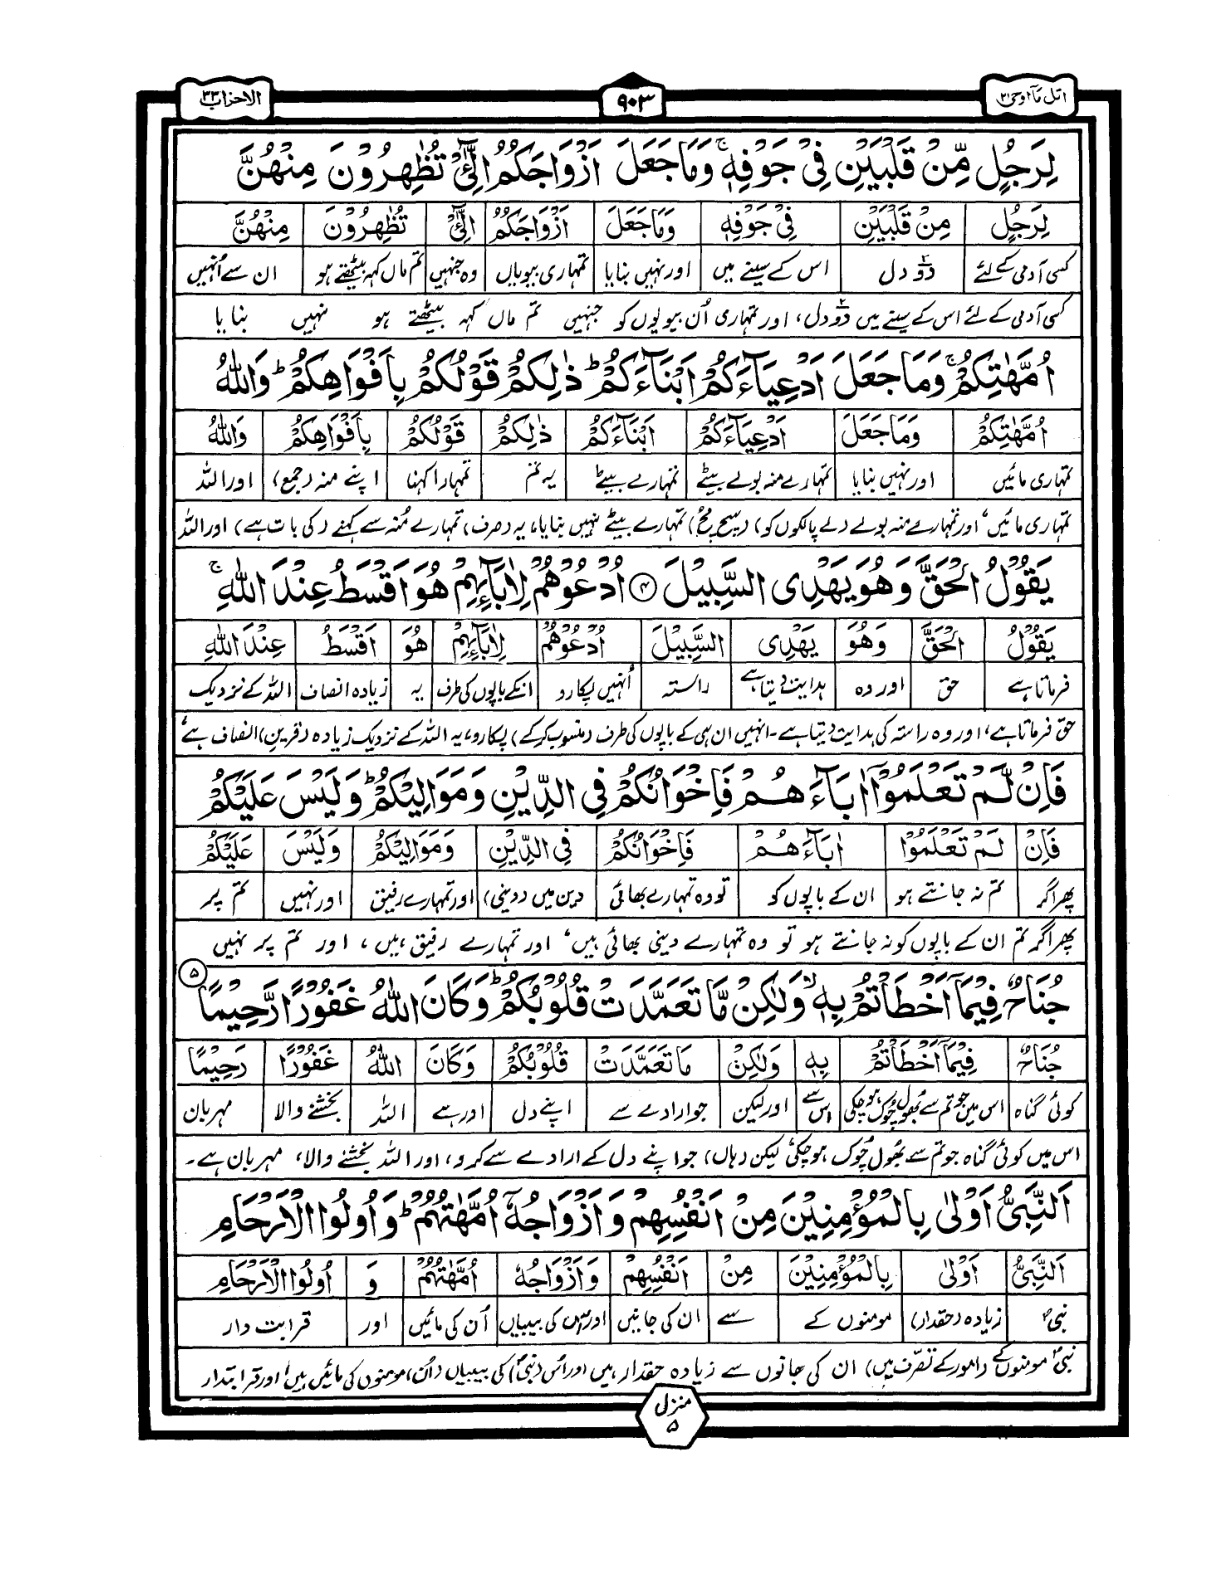 اتل مآ اوحی ۲۱ ۹۰۳ الاحزاب ۳۳
لِرَجُلٍ مِّنْ قَلْبَيْنِ فِيْ جَوْفِهٖ ۚ وَمَا جَعَلَ اَزْوَاجَكُمُ الّٰٓئِيْ تُظٰهِرُوْنَ مِنْهُنَّ
لِرَجُلٍ مِنْ قَلْبَيْنِ فِيْ جَوْفِهٖ وَمَا جَعَلَ اَزْوَاجَكُمُ الّٰٓئِيْ تُظٰهِرُوْنَ مِنْهُنَّ
کسی آدمی کے لئے دو دل اس کے سینے میں اور نہیں بنایا تمہاری بیویاں وہ جنہیں تم ماں کہہ بیٹھتے ہو ان سے اُنہیں
کسی آدمی کے لئے اس کے سینے میں دو دل، اور تمہاری اُن بیویوں کو جنہیں تم ماں کہہ بیٹھتے ہو نہیں بنایا
اُمَّهٰتِكُمْ ۚ وَمَا جَعَلَ اَدْعِيَآءَكُمْ اَبْنَآءَكُمْ ؕ ذٰلِكُمْ قَوْلُكُمْ بِاَفْوَاهِكُمْ ؕ وَاللّٰهُ
اُمَّهٰتِكُمْ وَمَا جَعَلَ اَدْعِيَآءَكُمْ اَبْنَآءَكُمْ ذٰلِكُمْ قَوْلُكُمْ بِاَفْوَاهِكُمْ وَاللّٰهُ
تمہاری مائیں اور نہیں بنایا تمہارے منہ بولے بیٹے تمہارے بیٹے یہ تم تمہارا کہنا اپنے منہ (جمع) اور اللہ
تمہاری مائیں، اور تمہارے منہ بولے (لے پالکوں کو) (سچ مچ) تمہارے بیٹے نہیں بنایا، یہ (صرف) تمہارے مُنہ سے کہنے (کی بات ہے) اور اللہ
يَقُوْلُ الْحَقَّ وَهُوَ يَهْدِي السَّبِيْلَ ۴ اُدْعُوْهُمْ لِاٰبَآئِهِمْ هُوَ اَقْسَطُ عِنْدَ اللّٰهِ ۚ
يَقُوْلُ الْحَقَّ وَهُوَ يَهْدِي السَّبِيْلَ اُدْعُوْهُمْ لِاٰبَآئِهِمْ هُوَ اَقْسَطُ عِنْدَ اللّٰهِ
فرماتا ہے حق اور وہ ہدایت دیتا ہے راستہ اُنہیں پکارو انکے باپوں کی طرف یہ زیادہ انصاف اللہ کے نزدیک
حق فرماتا ہے، اور وہ راستہ کی ہدایت دیتا ہے۔ انہیں ان ہی کے باپوں کی طرف (منسوب کر کے) پکارو، یہ اللہ کے نزدیک زیادہ (قرین) انصاف ہے،
فَاِنْ لَّمْ تَعْلَمُوْٓا اٰبَآءَهُمْ فَاِخْوَانُكُمْ فِي الدِّيْنِ وَمَوَالِيْكُمْ ؕ وَلَيْسَ عَلَيْكُمْ
فَاِنْ لَمْ تَعْلَمُوْا اٰبَآءَهُمْ فَاِخْوَانُكُمْ فِي الدِّيْنِ وَمَوَالِيْكُمْ وَلَيْسَ عَلَيْكُمْ
پھر اگر تم نہ جانتے ہو ان کے باپوں کو تو وہ تمہارے بھائی دین میں (دینی) اور تمہارے رفیق اور نہیں تم پر
پھر اگر تم ان کے باپوں کو نہ جانتے ہو تو وہ تمہارے دینی بھائی ہیں، اور تمہارے رفیق ہیں، اور تم پر نہیں
جُنَاحٌ فِيْمَآ اَخْطَاْتُمْ بِهٖ ۙ وَلٰكِنْ مَّا تَعَمَّدَتْ قُلُوْبُكُمْ ؕ وَكَانَ اللّٰهُ غَفُوْرًا رَّحِيْمًا ۵
جُنَاحٌ فِيْمَآ اَخْطَاْتُمْ بِهٖ وَلٰكِنْ مَا تَعَمَّدَتْ قُلُوْبُكُمْ وَكَانَ اللّٰهُ غَفُوْرًا رَحِيْمًا
کوئی گناہ اس میں جو تم سے بھول چوک ہو چکی اس سے اور لیکن جو ارادے سے اپنے دل اور ہے اللہ بخشنے والا مہربان
اس میں کوئی گناہ جو تم سے بھول چوک ہو چکی لیکن (ہاں) جو اپنے دل کے ارادے سے کرو، اور اللہ بخشنے والا، مہربان ہے۔
اَلنَّبِيُّ اَوْلٰى بِالْمُؤْمِنِيْنَ مِنْ اَنْفُسِهِمْ وَاَزْوَاجُهٗٓ اُمَّهٰتُهُمْ ؕ وَاُولُوا الْاَرْحَامِ
اَلنَّبِيُّ اَوْلٰى بِالْمُؤْمِنِيْنَ مِنْ اَنْفُسِهِمْ وَاَزْوَاجُهٗ اُمَّهٰتُهُمْ وَ اُولُوا الْاَرْحَامِ
نبیؐ زیادہ (حقدار) مومنوں کے سے ان کی جانیں اور اس کی بیبیاں اُن کی مائیں اور قرابت دار
نبیؐ مومنوں کے (امور کے تصرّف میں) ان کی جانوں سے زیادہ حقدار ہیں اور اس (نبی) کی بیبیاں (اُن) مومنوں کی مائیں ہیں، اور قرابتدار
منزل ۵